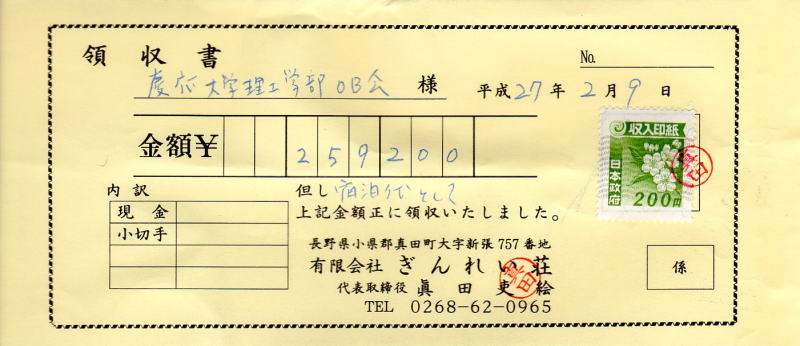 領収書
No.
慶応大学理工学部OB会 様
平成27年2月9日
金額¥ 259200
収入印紙
日本政府
200円
眞田
内訳
現金
小切手
但し 宿泊代として
上記金額正に領収いたしました。
長野県小県郡真田町大字新張757番地
有限会社 ぎんれい荘
代表取締役 眞田吏絵
眞田
TEL 0268-62-0965
係